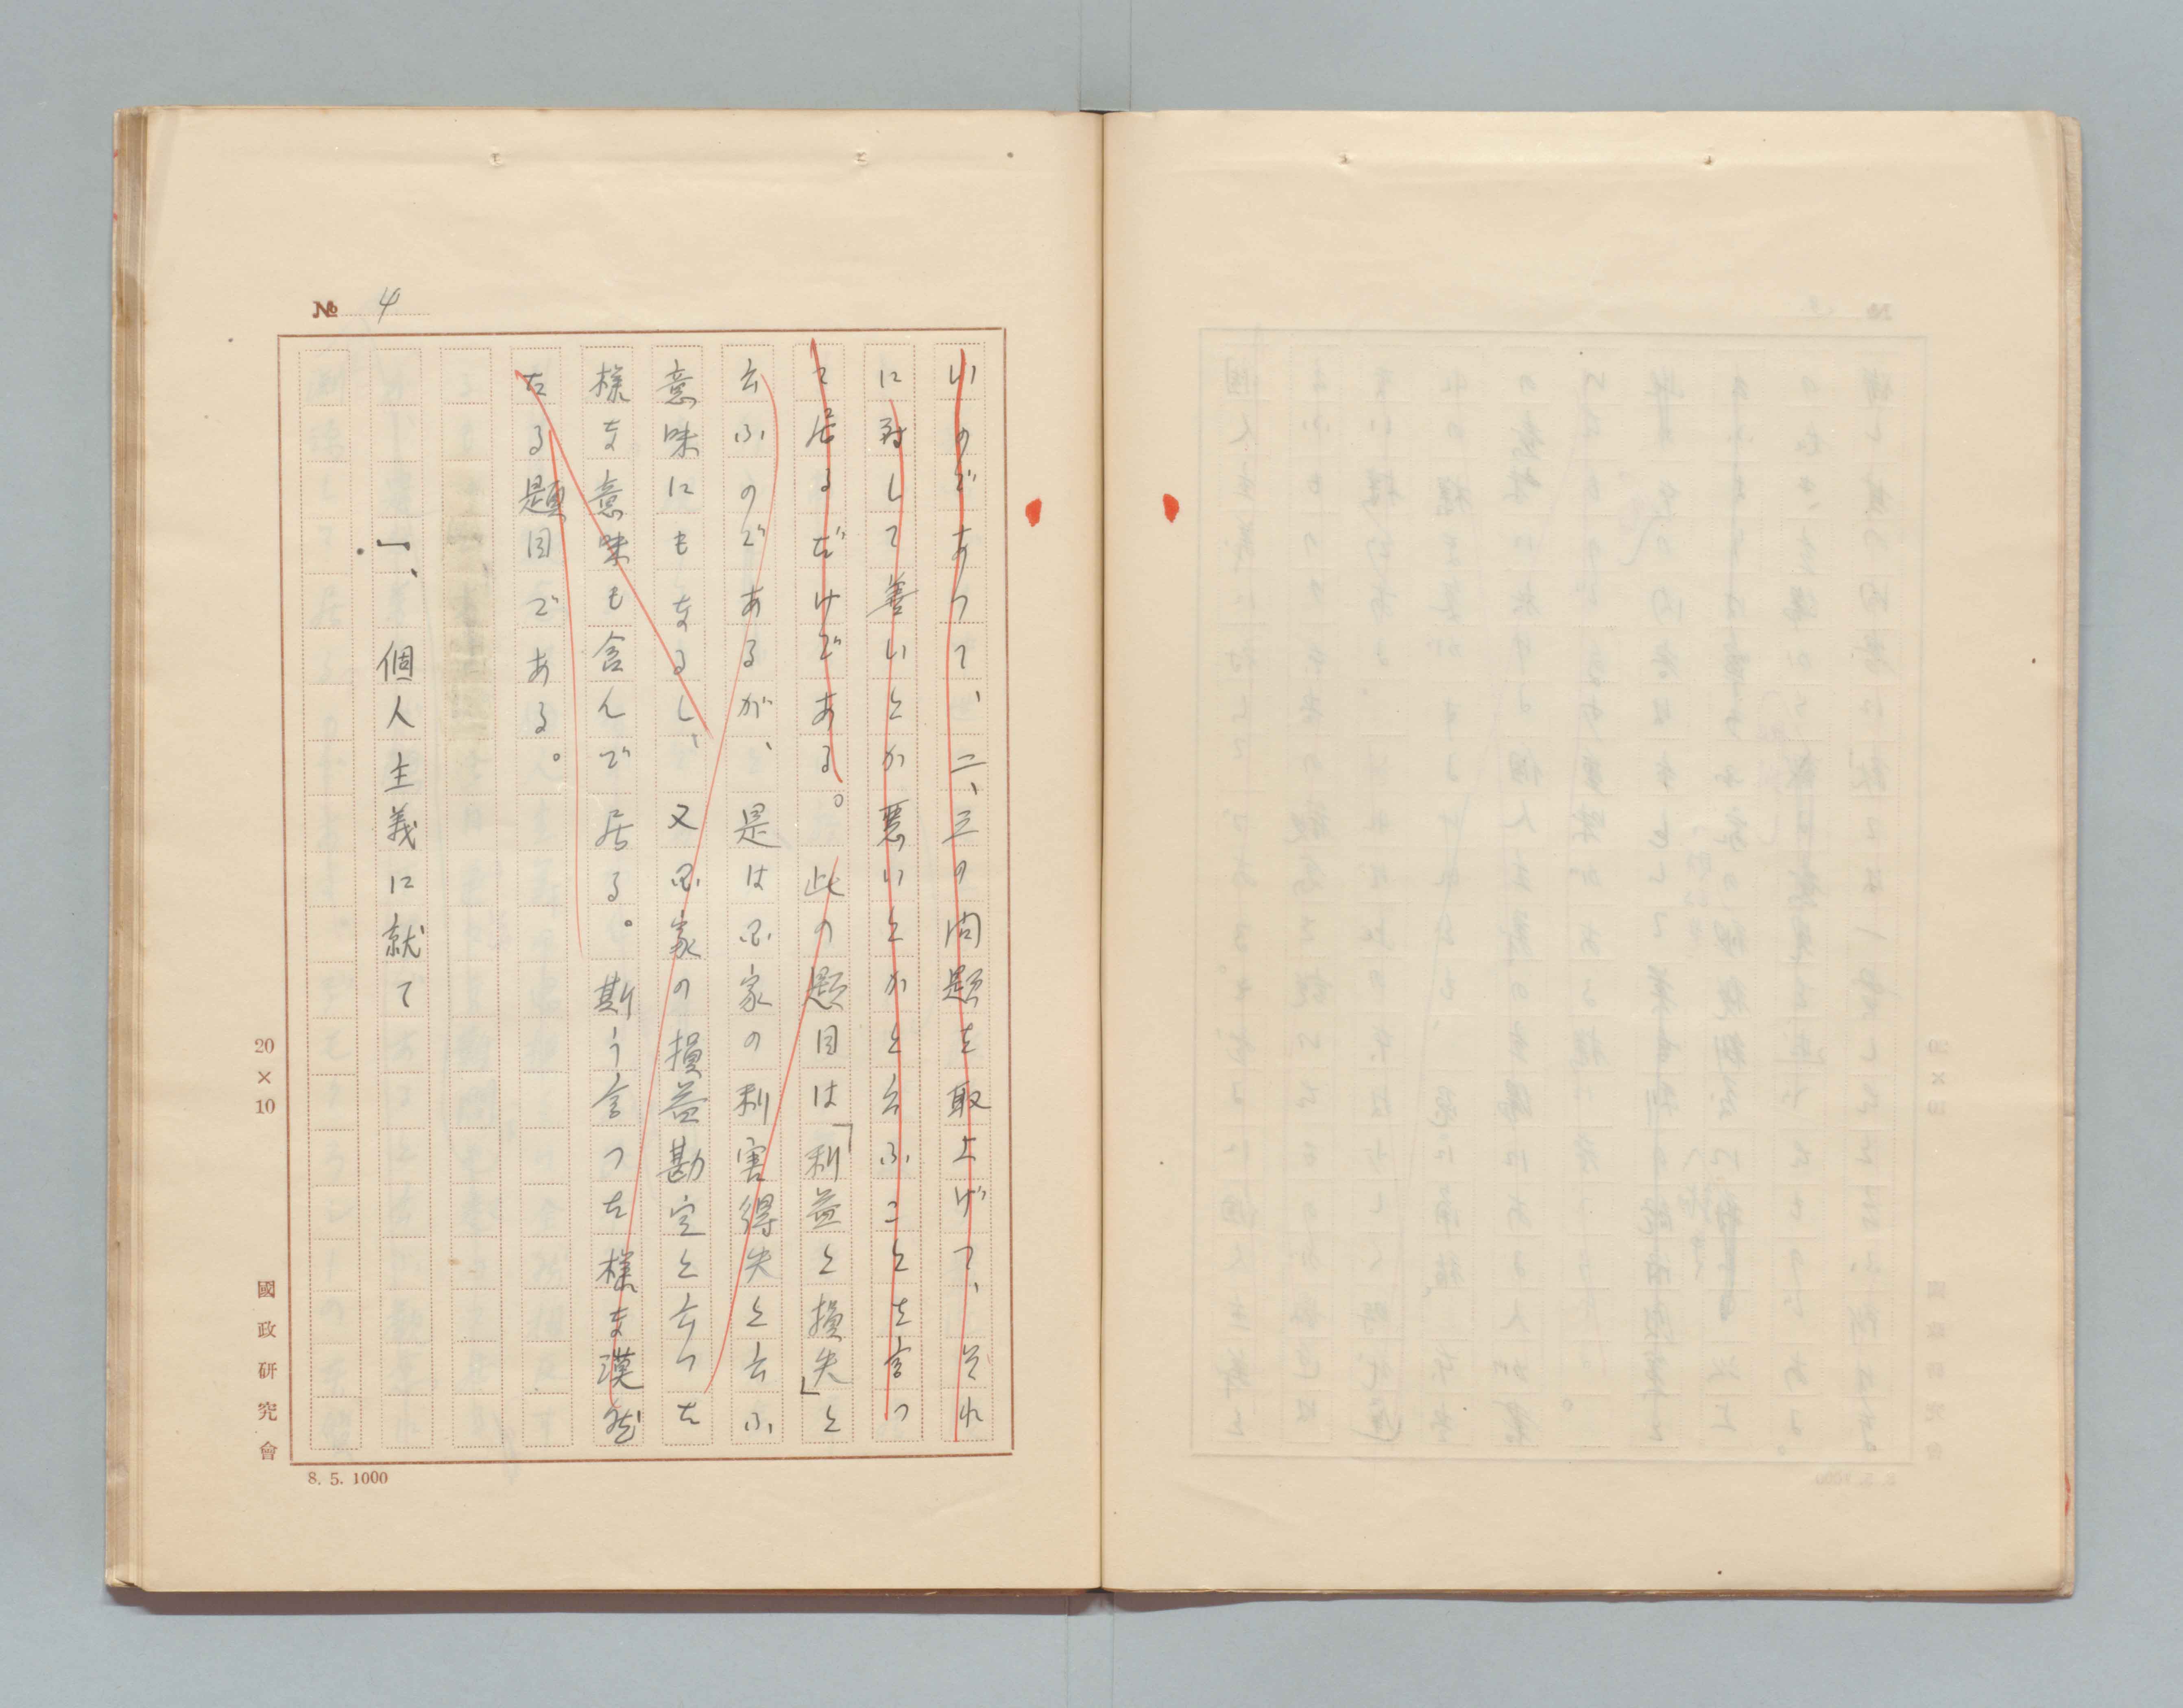 № 4
いのであつて、二、三の問題を取上げて、それ
に対して善いとか悪いとかと云ふことを言つ
て居るだけである。此の題目は「利益と損失」と
云ふのであるが、是は国家の利害得失と云ふ
意味にもなるし、又国家の損益勘定と云つた
様な意味も含んで居る。斯う言つた様な漠然
たる題目である。
一、個人主義に就て
20×10
國政研究會
8. 5. 1000